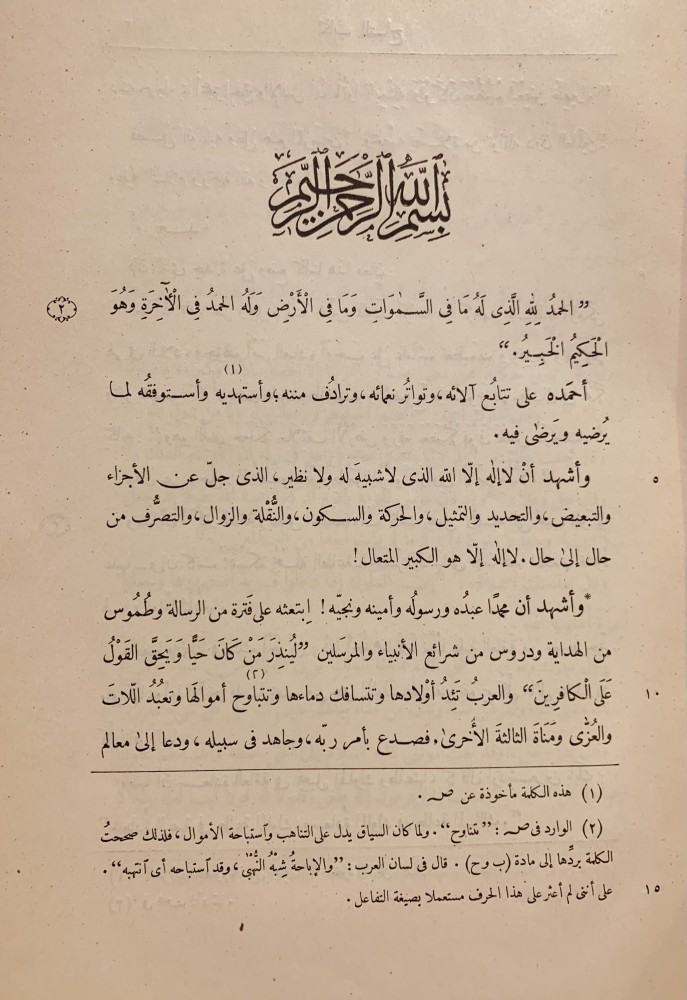 بِسْمِ اللَّهِ الرَّحْمَٰنِ الرَّحِيمِ
”الحمدُ لِلّٰهِ الَّذِى لَهُ مَا فِى السَّمٰوَاتِ وَمَا فِى الْأَرْضِ وَلَهُ الحمدُ فِى الْآخِرَةِ وَهُوَ ٢
الْحَكِيمُ الْخَبِيرُ.“
أحمَده على تتابُع آلائه، وتواتُر نعمائه، وترادُف مننه؛ وأستهديه (١) وأستوفقُه لما
يُرضيه ويَرضىٰ فيه.
وأشهد أنْ لاإلٰه إلّا الله الذى لاشبيهَ له ولا نظير، الذى جلّ عن الأجزاء ٥
والتبعيض، والتحديد والتمثيل، والحركة والسكون، والنُّقْلة والزوال، والتصرُّف من
حال إلىٰ حال. لاإلٰه إلّا هو الكبير المتعال!
*وأشهد أن محمدًا عبدُه ورسولُه وأمينه ونجيّه! اِبتعثه على فَترة من الرسالة وطُمُوس
من الهداية ودروس من شرائع الأنبياء والمرسَلين ”لِيُنذِرَ مَنْ كَانَ حَيًّا وَيَحِقَّ القَوْلُ
عَلَى الْكافِرِينَ“ والعربُ تَئِدُ أوْلادها وتتسافك دماءها وتتباوح (٢) أموالهَا وتعبُدُ اللّاتَ ١٠
والعُزّٰى ومَنَاةَ الثالثةَ الأُخرىٰ. فصدع بأمر ربّه، وجاهد فى سبيله، ودعا إلىٰ معالم
(١) هذه الكلمة مأخوذة عن صـ .
(٢) الوارد فى صـ : ”تتناوح“. ولما كان السياق يدل على التناهب وٱستباحة الأموال، فلذلك صححتُ
الكلمة بردِّها إلى مادة (ب و ح) . قال فى لسان العرب : ”والإباحةُ شِبْهُ النُّهْبَى، وقد ٱستباحه أى ٱنتهبه“.
على أننى لم أعثر على هذا الحرف مستعملا بصيغة التفاعل. ١٥